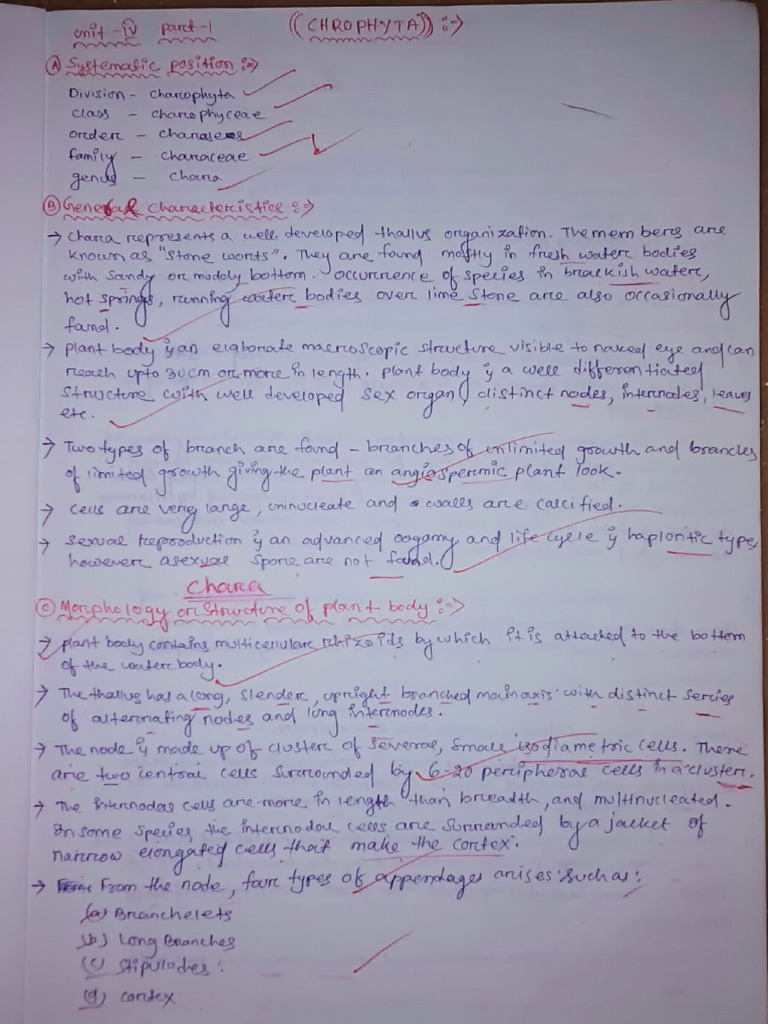 unit-iv part-1 ((CHROPHYTA)) :->
(A) Systematic position :->
Division - Charophyta
class - charophyceae
order - charales
family - characeae
genus - chara
(B) General characteristics :->
→ Chara represents a well developed thallus organization. The members are
known as "Stone worts". They are found mostly in fresh water bodies
with sandy or muddy bottom. occurrence of species in brackish water,
hot springs, running water bodies over lime stone are also occasionally
found.
→ plant body is an elaborate macroscopic structure visible to naked eye and can
reach upto 30cm or more in length. plant body is a well differentiated
structure with well developed sex organ, distinct nodes, internodes, leaves
etc.
→ Two types of branch are found - branches of unlimited growth and branches
of limited growth giving the plant an angiospermic plant look.
→ cells are very large, uninucleate and walls are calcified.
→ sexual reproduction is an advanced oogamy and life cycle is haplontic type,
however asexual spore are not found.
Chara
(C) Morphology or structure of plant body :->
→ plant body contains multicellular rhizoids by which it is attached to the bottom
of the water body.
→ The thallus has a long, slender, upright branched main axis with distinct series
of alternating nodes and long internodes.
→ The node is made up of cluster of several, small isodiametric cells. There
are two central cells surrounded by 6-20 peripheral cells in a cluster.
→ The internodas cells are more in length than breadth, and multinucleated.
In some species the internodal cells are surranded by a jacket of
narrow elongated cells that make the cortex.
→ From the node, four types of appendages arises such as:
(a) Branchelets
(b) Long Branches
(c) Stipulodes :
(d) cortex